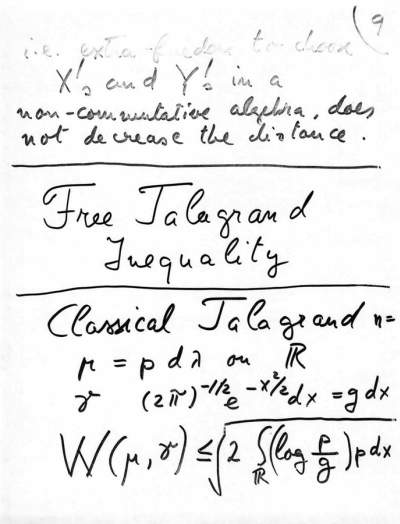 9
i.e. extra freedom to choose
X's and Y's in a
non-commutative algebra, does
not decrease the distance.
Free Talagrand
Inequality
Classical Talagrand n=
μ = p dλ on ℝ
γ (2π)^{-1/2} e^{-x²/2} dx = g dx
W(μ, γ) ≤ √(2 ∫_ℝ (log p/g) p dx